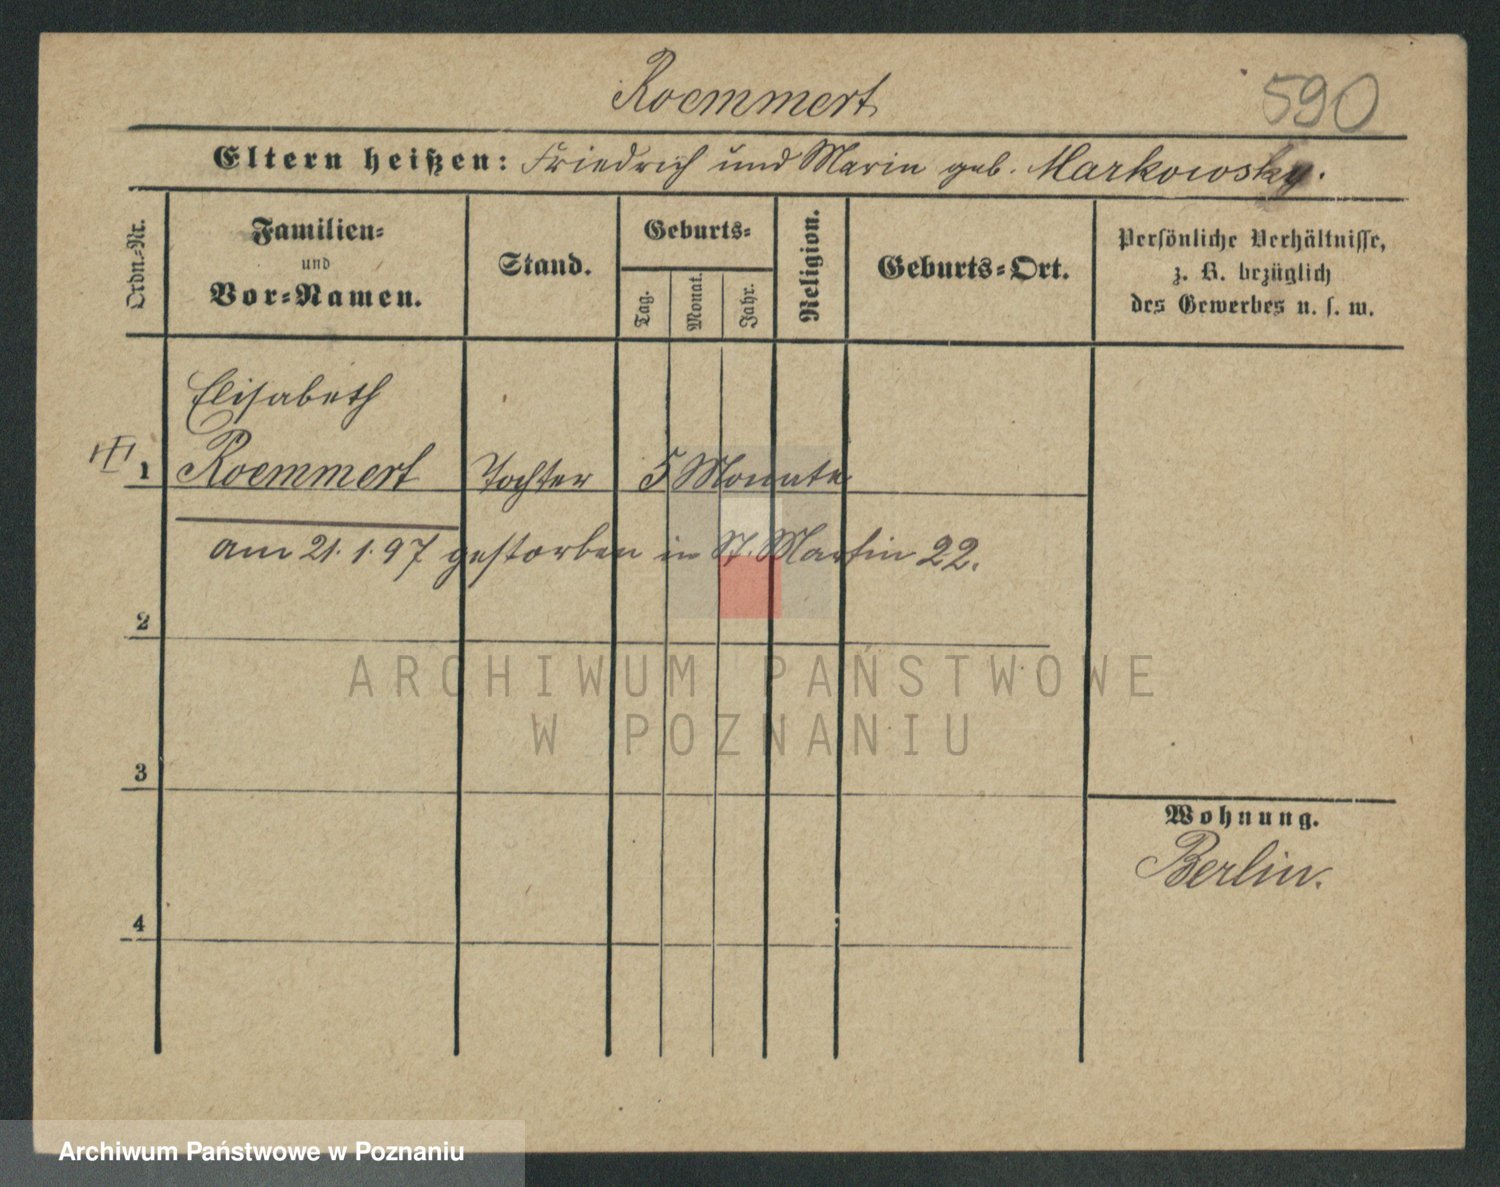 Roemmert
590
Eltern heißen: Friedrich und Marie geb. Markowsky.
Ordn.-Nr.
Familien-
und
Vor-Namen.
Stand.
Geburts-
Tag.
Monat.
Jahr.
Religion.
Geburts-Ort.
Persönliche Verhältnisse,
z. B. bezüglich
des Gewerbes u. s. w.
Elisabeth
1 Roemmert Tochter 5 Monate
am 21.1.97 gestorben in St. Martin 22.
2
3
4
Wohnung.
Berlin.
ARCHIWUM PAŃSTWOWE
W POZNANIU
Archiwum Państwowe w Poznaniu